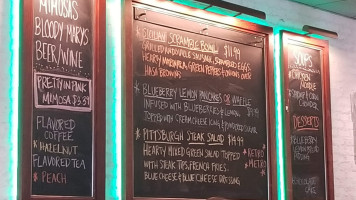 MIMOSAS
BLOODY MARYS
BEER/WINE
PRETTY IN PINK
MIMOSA $3.39
FLAVORED
COFFEE
HAZELNUT
FLAVORED TEA
PEACH
SICILIAN SCRAMBLE BOWL $11.99
SCRAMBLED EGGS
HEARTY MARINARA, GREEN PEPPERS & ONIONS OVER
HASH BROWNS
BLUEBERRY LEMON PANCAKES OR WAFFLE
INFUSED WITH BLUEBERRIES & LEMON
TOPPED WITH CREAM CHEESE ICING
PITTSBURGH STEAK SALAD $14.99
HEARTY MIXED GREEN SALAD TOPPED
WITH STEAK TIPS, FRENCH FRIES,
BLUE CHEESE & BLUE CHEESE DRESSING
SOUPS
CHICKEN
NOODLE
DESSERTS
BLUEBERRY
LEMON
CAKE